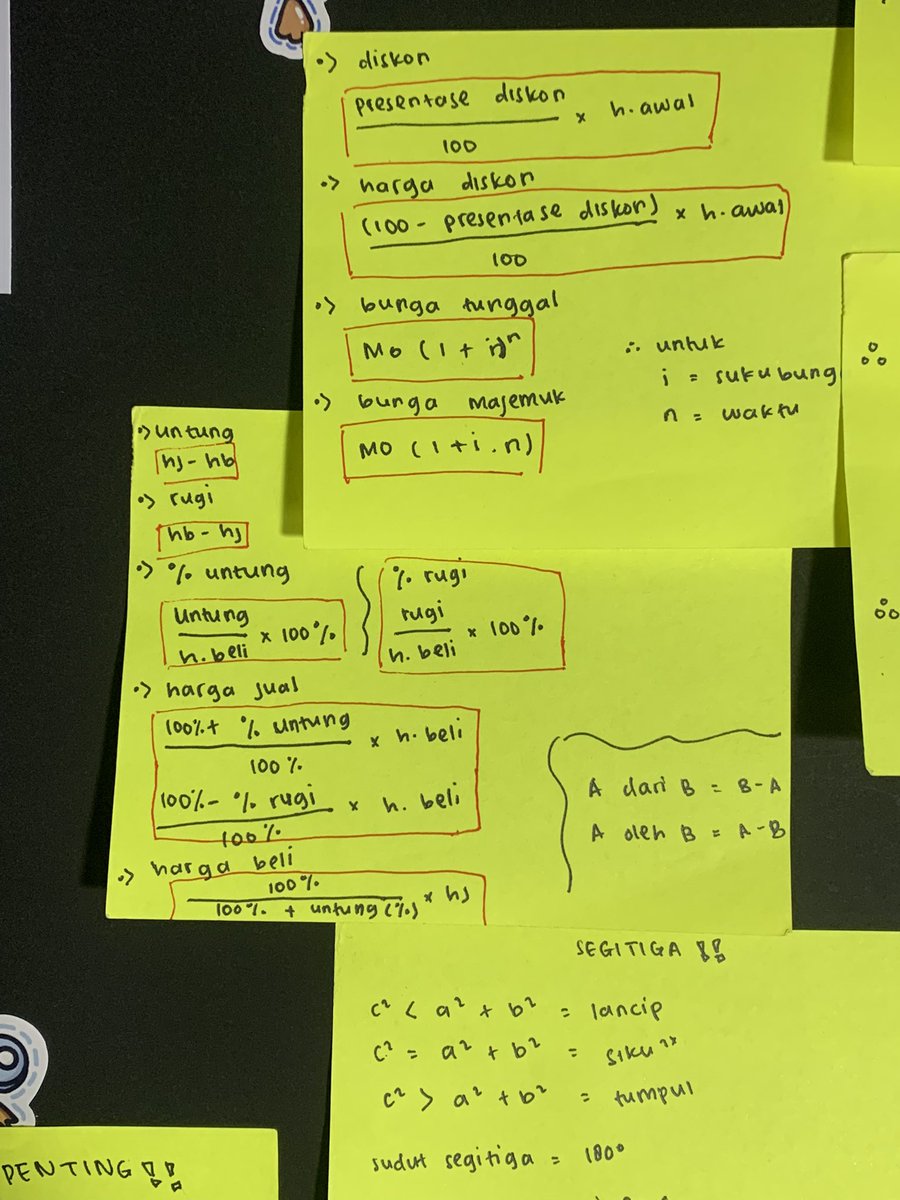 •> diskon
presentase diskon
100
× h.awal
•> harga diskon
(100 - presentase diskon)
100
× h.awal
•> bunga tunggal
Mo (1 + i)ⁿ
•> bunga majemuk
MO (1+i.n)
∴ untuk
i = sukubung
n = waktu
•> untung
hj - hb
•> rugi
hb - hj
•> % untung
untung
h.beli
× 100%
% rugi
rugi
h.beli
× 100%
•> harga jual
100% + % untung
100%
× h.beli
100% - % rugi
100%
× h.beli
•> harga beli
100%
100% + untung (%)
× hj
A dari B = B-A
A oleh B = A-B
SEGITIGA !!
c² < a² + b² = lancip
c² = a² + b² = siku²
c² > a² + b² = tumpul
sudut segitiga = 180°
PENTING !!